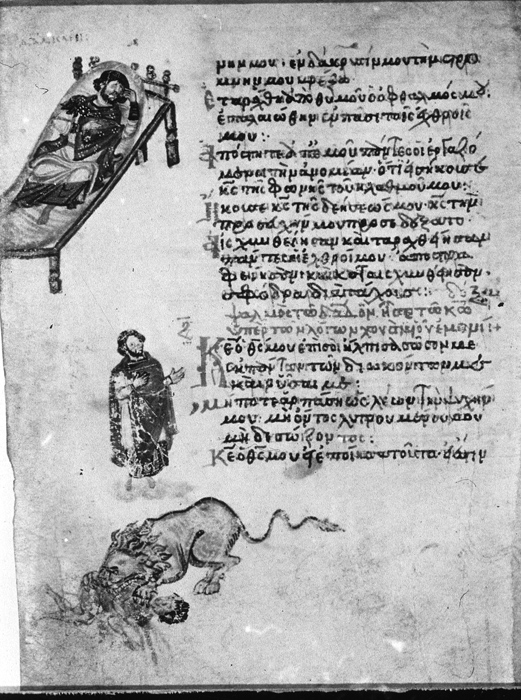 μνην μου· ἐν δάκρυσίν μου τὴν στρω
μνήν μου βρέξω
Ἐταράχθη ἀπὸ θυμοῦ ὁ ὀφθαλμός μου
ἐπαλαιώθην ἐν πᾶσι τοῖς ἐχθροῖς
μου:
Ἀπόστητε ἀπ' ἐμοῦ πάντες οἱ ἐργαζό
μενοι τὴν ἀνομίαν· ὅτι εἰσήκουσε
κς τῆς φωνῆς τοῦ κλαυθμοῦ μου:
Ἤκουσε κς τῆς δεήσεώς μου· κς τὴν
προσευχήν μου προσεδέξατο
Αἰσχυνθείησαν καὶ ταραχθείησαν
πάντες οἱ ἐχθροί μου· ἀποστρα
φείησαν καὶ καταισχυνθείησαν
σφόδρα διὰ τάχους:
ψαλμὸς τῷ δαδ ὃν ᾖσεν τῷ κω
ὑπὲρ τῶν λόγων
Κε ὁ θς μου ἐπὶ σοὶ ἤλπισα σῶσόν με
ἐκ πάντων τῶν διωκόντων με
καὶ ῥῦσαί με:
μήποτε ἁρπάσῃ ὡς λέων τὴν ψυχήν
μου· μὴ ὄντος λυτρουμένου
μηδὲ σώζοντος:
Κε ὁ θς μου εἰ ἐποίησα τοῦτο εἰ ἔστιν